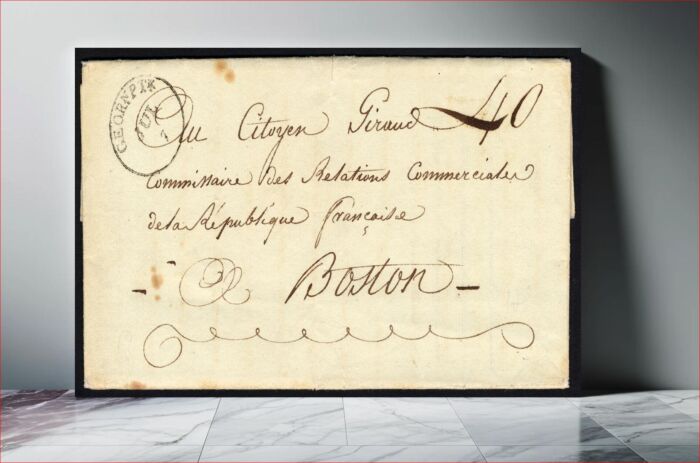 GEORNPT*
JUL
7
Au Citoyen Giraud 40
Commissaire des Relations Commerciales
de la République française
- A Boston -